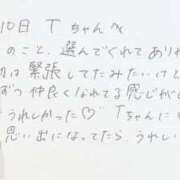 10日 Tちゃんへ
のこと、選んでくれてありが
は緊張してたみたいけど
ずつ仲良くなれてる感じがし
うれしかった♡ Tちゃんに
思い出になってたら、うれしい